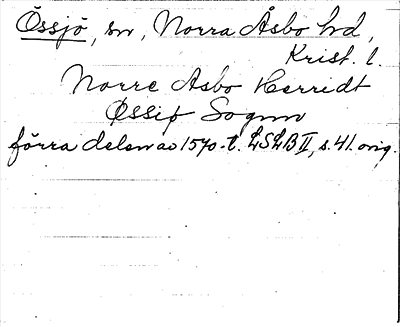 Össjö, sn, Norra Åsbo hd,
Krist. l.
Norre Asbo Herridt
Øssiø Sognn
förra delen av 1570-t. LSLB II, s. 41. orig.